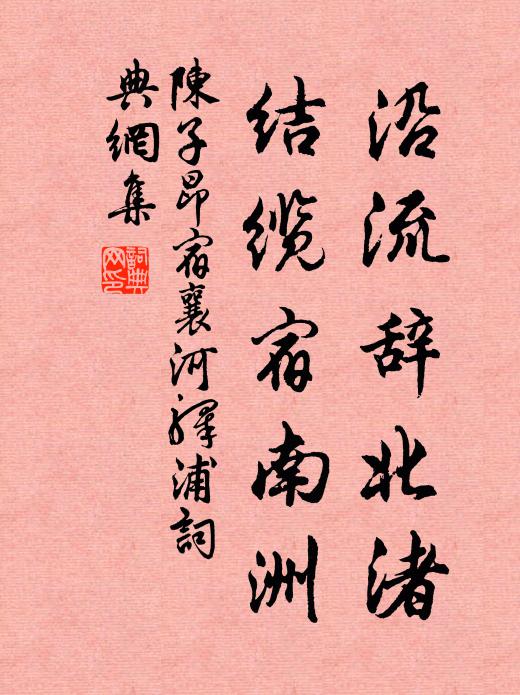 沿流辞北渚
结缆宿南洲
陳子昂宿襄河驛浦詞
典網集
詞典
网印